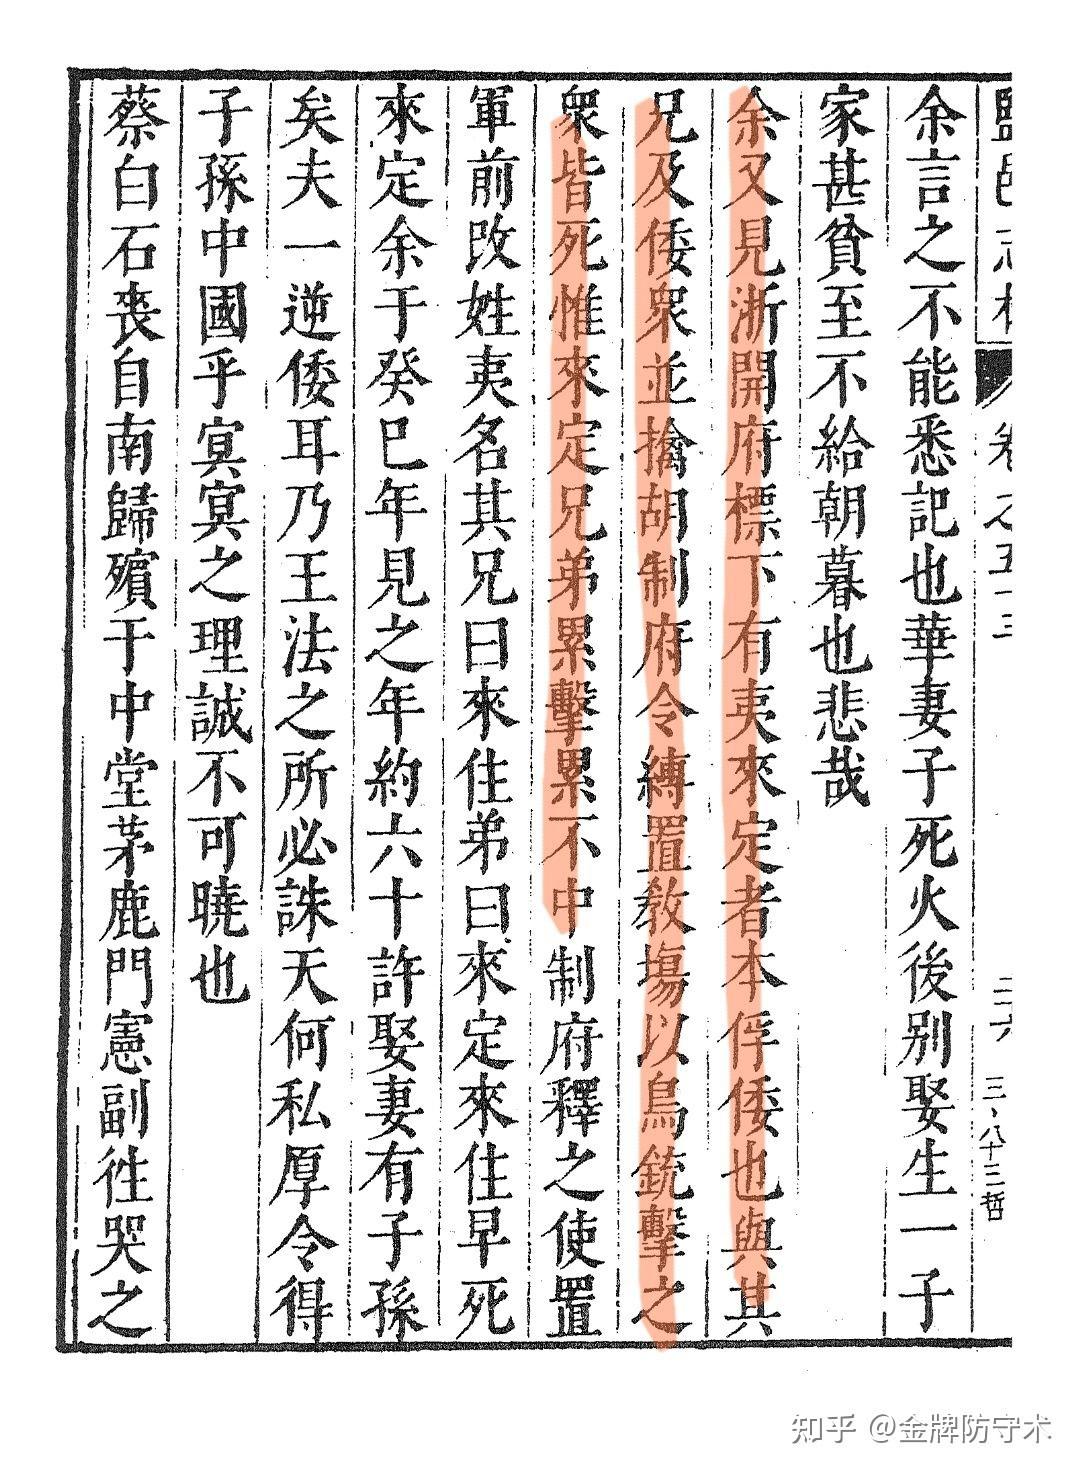 卷之五十三
二六
三、八十三哲
余言之不能悉記也華妻子死火後別娶生一子
家甚貧至不給朝暮也悲哉
余又見浙開府標下有夷來定者本俘倭也與其
兄及倭眾並擒胡制府令縛置教塲以鳥銃擊之
衆皆死惟來定兄弟累擊累不中制府釋之使置
軍前改姓夷名其兄曰來住弟曰來定來住早死
來定余于癸巳年見之年約六十許娶妻有子孫
矣夫一逆倭耳乃王法之所必誅天何私厚令得
子孫中國乎冥冥之理誠不可曉也
蔡白石喪自南歸殯于中堂茅鹿門憲副徃哭之
知乎 @金牌防守术